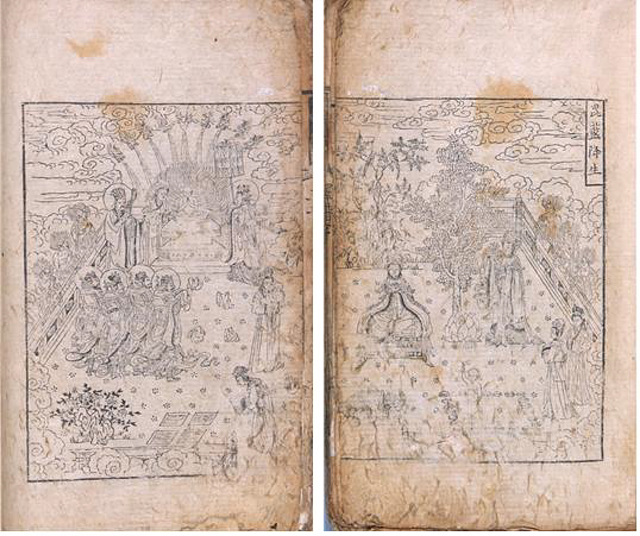 毘藍降生